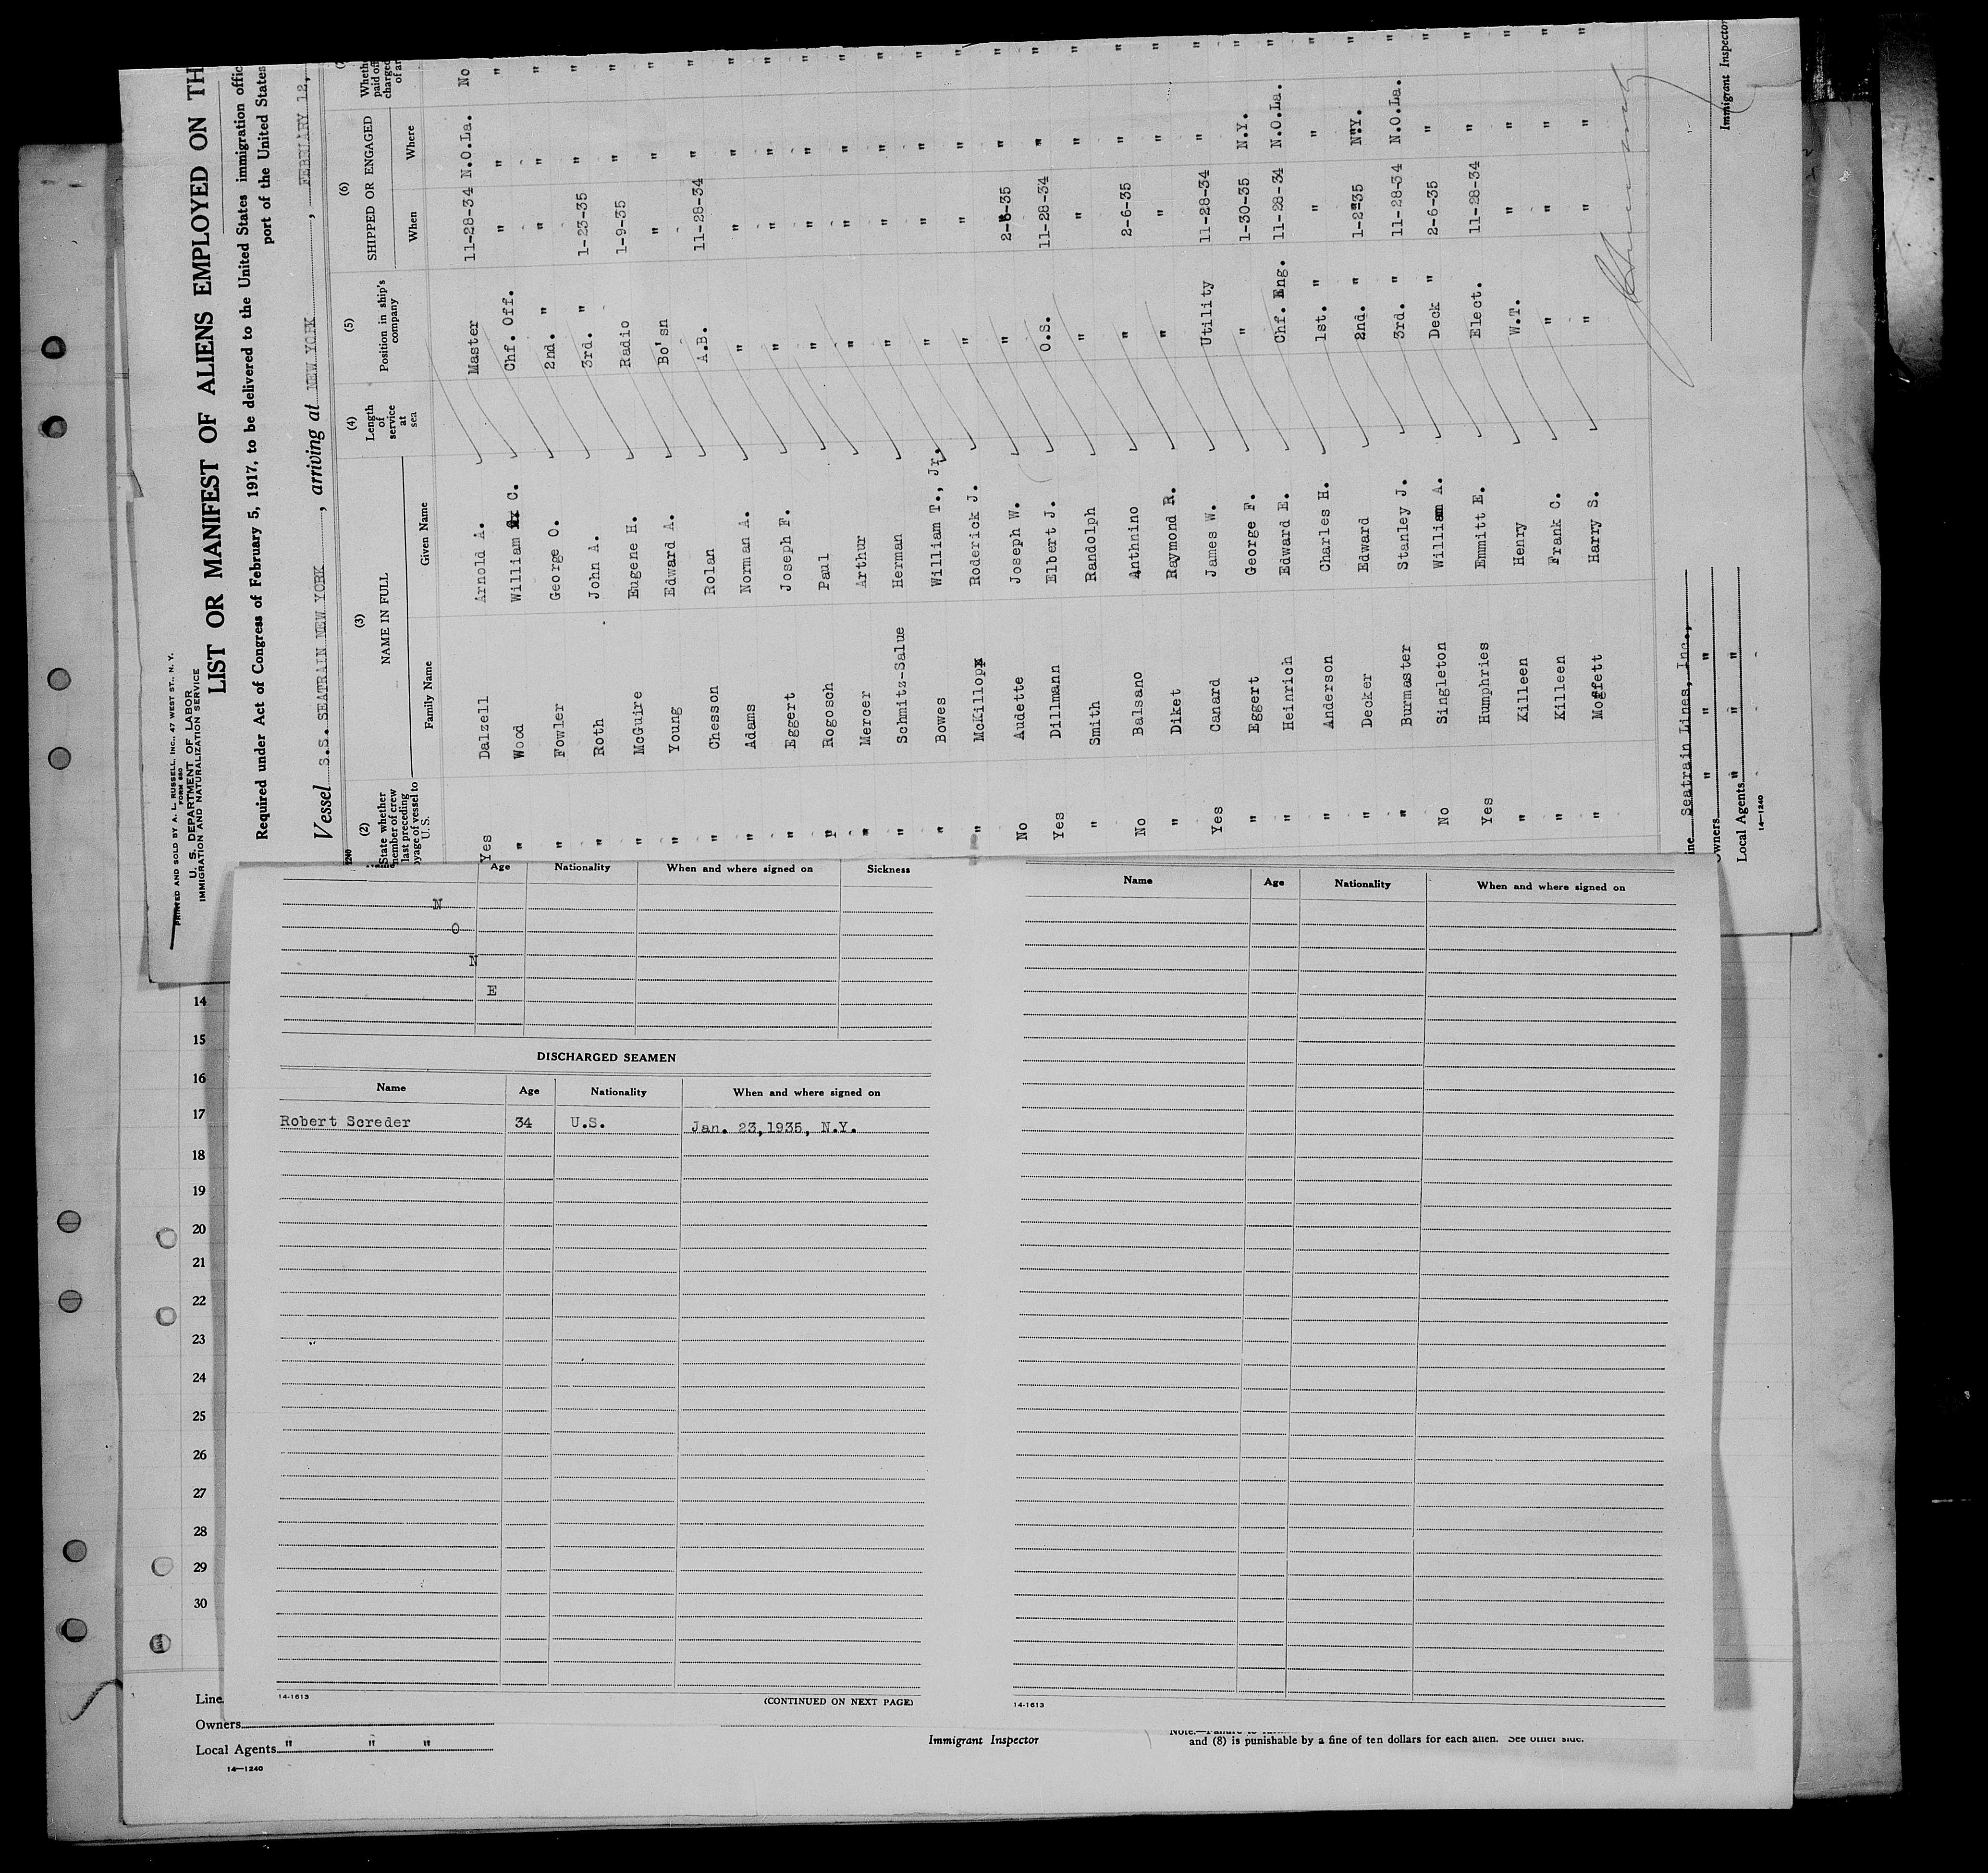 PRINTED AND SOLD BY A. L. RUSSELL, INC., 47 WEST ST., N. Y.
FORM 680
U. S. DEPARTMENT OF LABOR
IMMIGRATION AND NATURALIZATION SERVICE
LIST OR MANIFEST OF ALIENS EMPLOYED ON TH
Required under Act of Congress of February 5, 1917, to be delivered to the United States immigration offic
port of the United States
Vessel S.S. SEATRAIN NEW YORK, arriving at NEW YORK, FEBRUARY 12,
(2) (3) (4) (5) (6)
State whether member of crew last preceding voyage of vessel to U. S. NAME IN FULL Length of service at sea Position in ship's company SHIPPED OR ENGAGED
Family Name Given Name When Where
Yes Dalzell Arnold A. Master 11-28-34 N.O.La. No
" Wood William C. Chf. Off. " " "
" Fowler George O. 2nd. " " " "
" Roth John A. 3rd. " 1-23-35 " "
" McGuire Eugene H. Radio 1-9-35 " "
" Young Edward A. Bo'sn " " "
" Chesson Rolan A.B. 11-28-34 " "
" Adams Norman A. " " " "
" Eggert Joseph F. " " " "
" Rogosch Paul " " " "
" Mercer Arthur " " " "
" Schmitz-Salue Herman " " " "
" Bowes William T., Jr. " " " "
" McKillop Roderick J. " " " "
No Audette Joseph W. " 2-6-35 " "
Yes Dillmann Elbert J. O.S. 11-28-34 " "
" Smith Randolph " " "
No Balsano Anthnino " 2-6-35 " "
" Diket Raymond R. " " " "
Yes Canard James W. Utility 11-28-34 " "
" Eggert George F. " 1-30-35 N.Y. "
" Heinrich Edward E. Chf. Eng. 11-28-34 N.O.La. "
" Anderson Charles H. 1st. " " " "
" Decker Edward 2nd. " 1-2-35 N.Y. "
" Burmaster Stanley J. 3rd. " 11-28-34 N.O.La. "
No Singleton William A. Deck " 2-6-35 " "
Yes Humphries Emmitt E. Elect. 11-28-34 " "
" Killeen Henry W.T. " " "
" Killeen Frank C. " " " "
" Moffett Harry S. " " " "
ine Seatrain Lines, Inc.,
Owners " " "
Local Agents " " "
14—1240
Immigrant Inspector
Age Nationality When and where signed on Sickness
N
O
N
E
DISCHARGED SEAMEN
Name Age Nationality When and where signed on
Robert Screder 34 U.S. Jan. 23,1935, N.Y.
14-1613 (CONTINUED ON NEXT PAGE)
Name Age Nationality When and where signed on
14-1613
14
15
16
17
18
19
20
21
22
23
24
25
26
27
28
29
30
Line
Owners
Local Agents " " "
14—1240
Immigrant Inspector
and (8) is punishable by a fine of ten dollars for each alien. See other side.